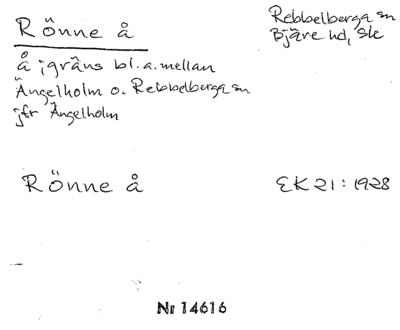 Rönne å
Rebbelberga sn
Bjäre hd, Sk
å; gräns bl. a. mellan
Ängelholm o. Rebbelberga sn
jfr Ängelholm
Rönne å
EK 21: 1928
Nr 14616